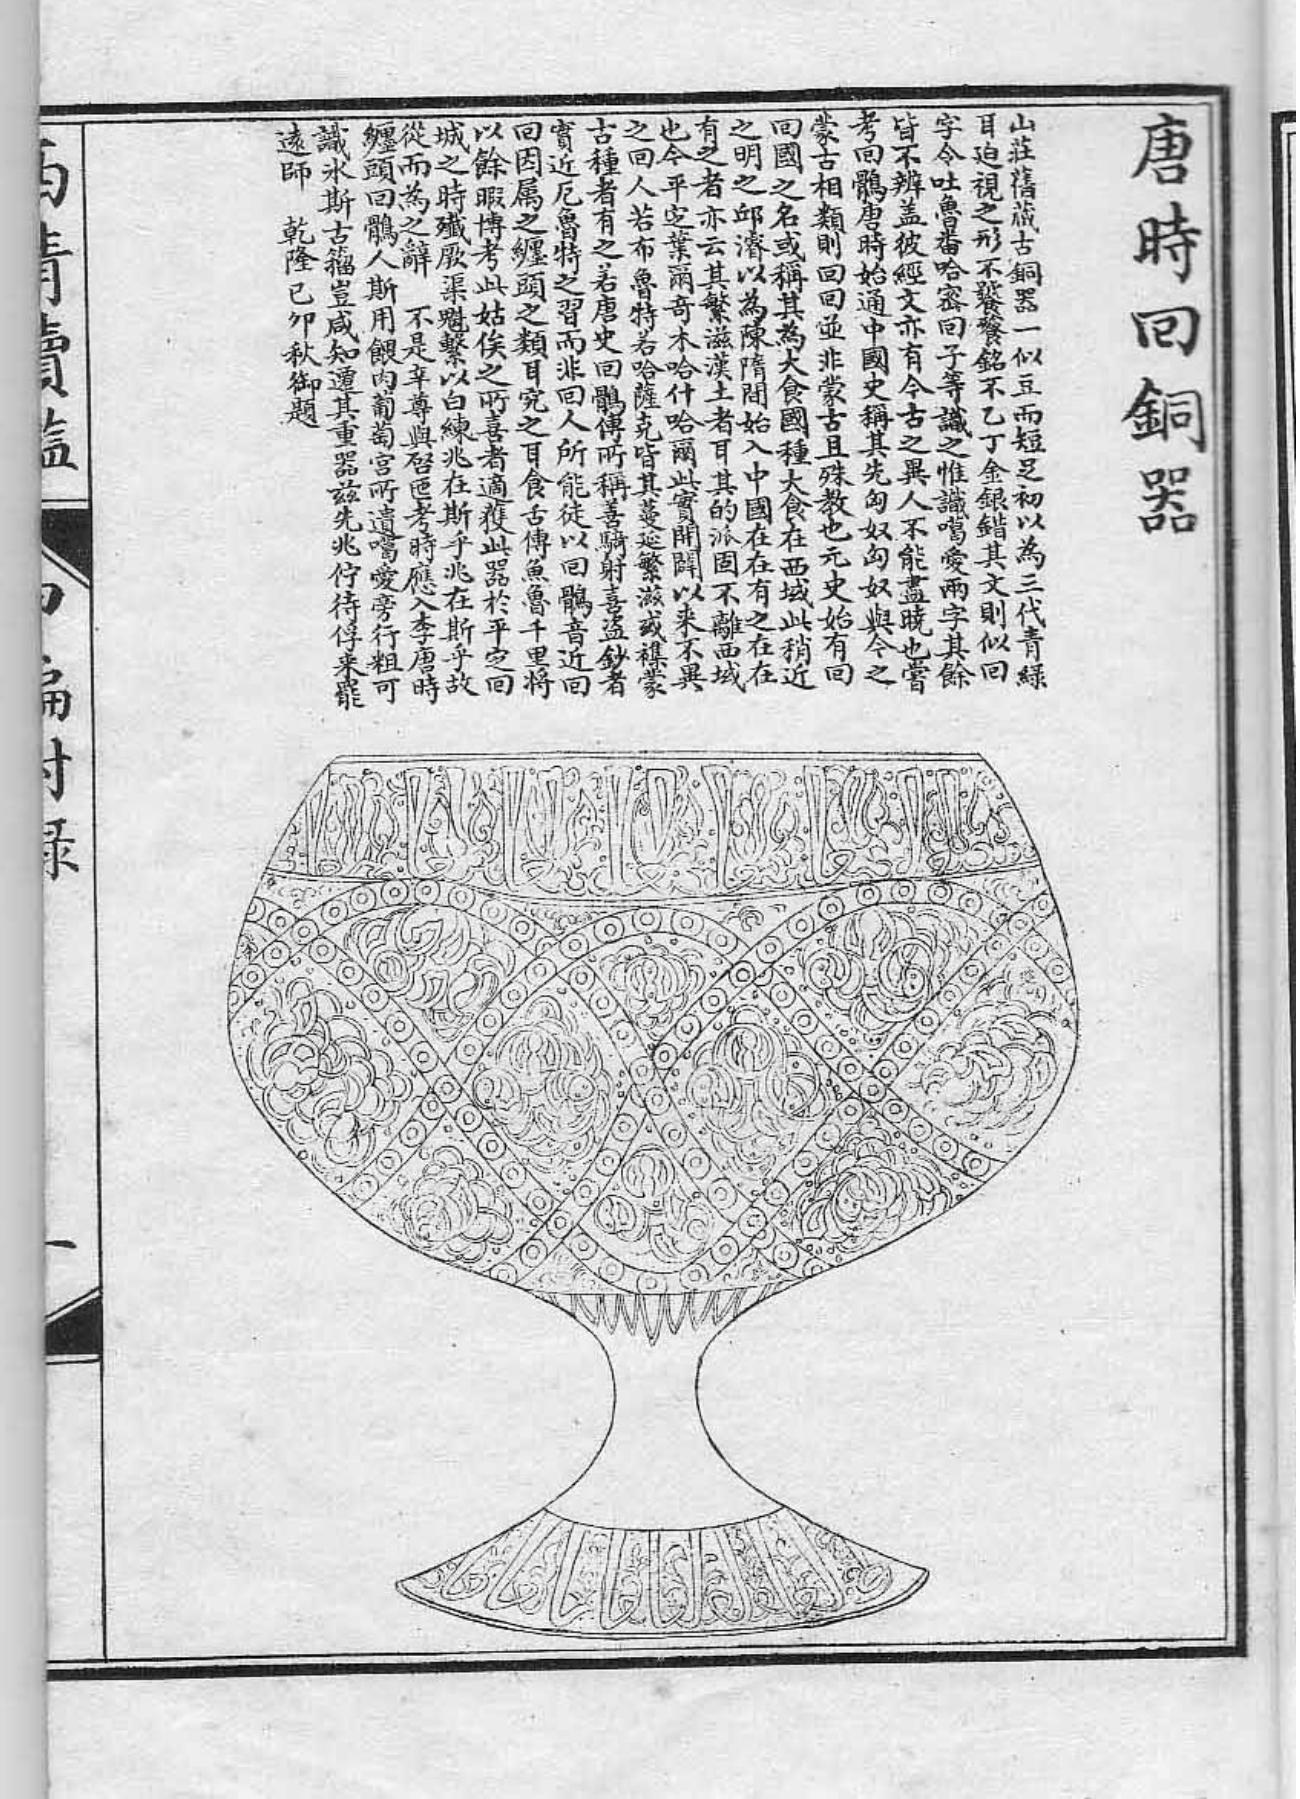 唐時回銅器
山莊舊藏古銅器一似豆而短足初以為三代青綠
耳迫視之形不饕餮銘不乙丁金銀錯其文則似回
字令吐魯番哈密回子等識之惟識噶愛兩字其餘
皆不辨蓋彼經文亦有今古之異人不能盡曉也嘗
考回鶻唐時始通中國史稱其先匈奴匈奴與今之
蒙古相類則回回並非蒙古且殊教也元史始有回
回國之名或稱其為大食國種大食在西域此稍近
之明之邱濬以為陳隋間始入中國在在有之在在
有之者亦云其繁滋漢土者耳其的派固不離西域
也今平定葉爾奇木哈什哈爾此實開闢以來不異
之回人若布魯特若哈薩克皆其蔓延繁滋或襍蒙
古種者有之若唐史回鶻傳所稱善騎射喜盜鈔者
實近厄魯特之習而非回人所能徒以回鶻音近回
回因屬之纏頭之類耳究之耳食舌傳魚魯千里將
以餘暇博考此姑俟之所喜者適獲此器於平定回
城之時殲厥渠魁繫以白練兆在斯乎兆在斯乎故
從而為之辭 不是辛尊與啓匜考時應入李唐時
纏頭回鶻人斯用餵肉葡萄宮所遺噶愛旁行粗可
識氷斯古籀豈咸知遷其重器茲先兆佇待俘来罷
遠師 乾隆己卯秋御題
西清續鑑
甲編附錄
一